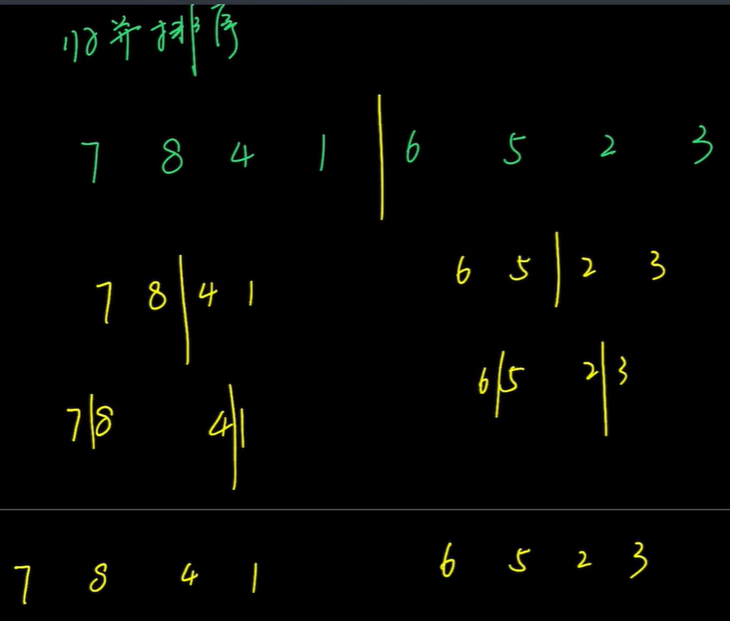 归并排序
7 8 4 1 | 6 5 2 3
7 8 | 4 1 6 5 | 2 3
7|8 4|1 6|5 2|3
7 8 4 1 6 5 2 3